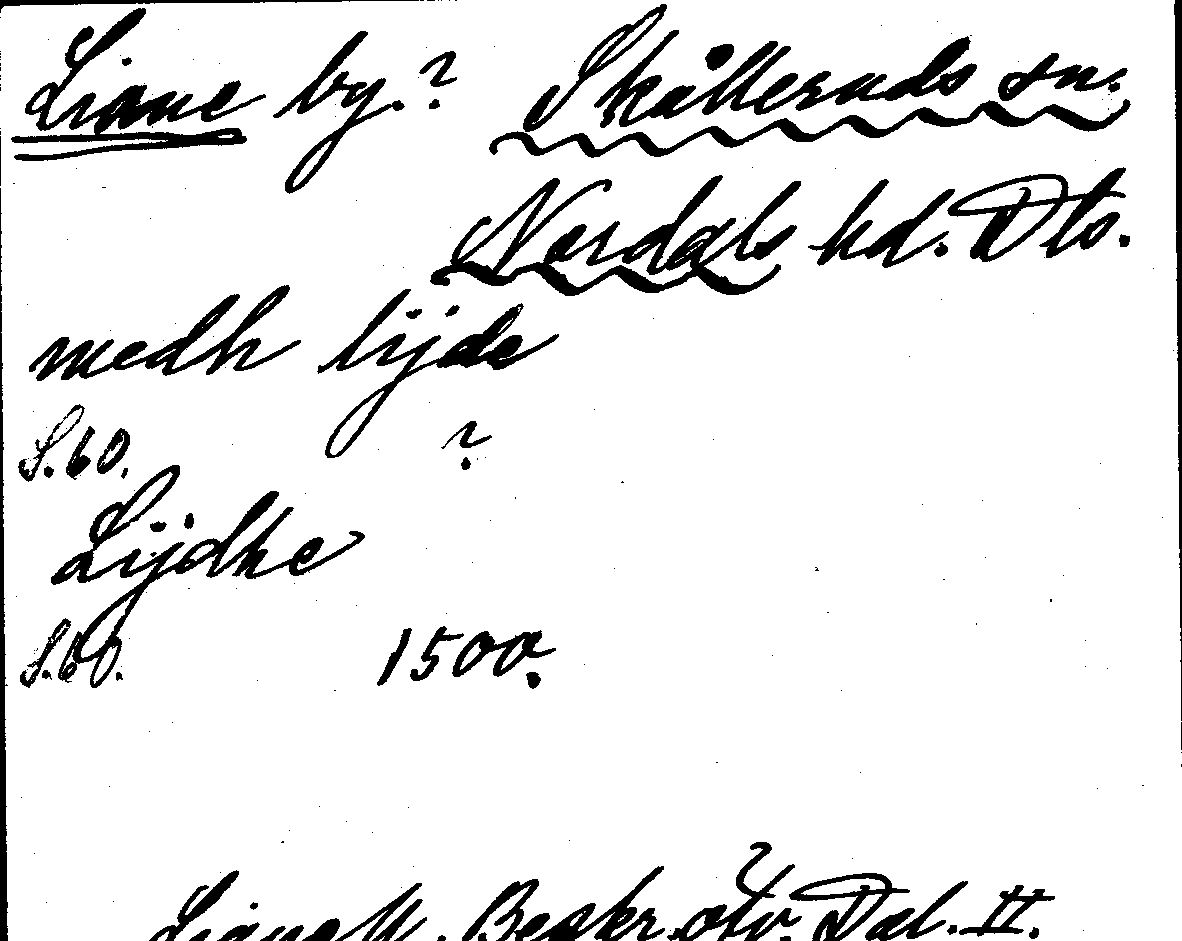 Liane by.? Skålleruds sn.
Nordals hd. Dls.
medh lijde
S.60. ?
Lijdhe
S.60. 1500.
Lignell. Beskr. öfv. Dal. II.